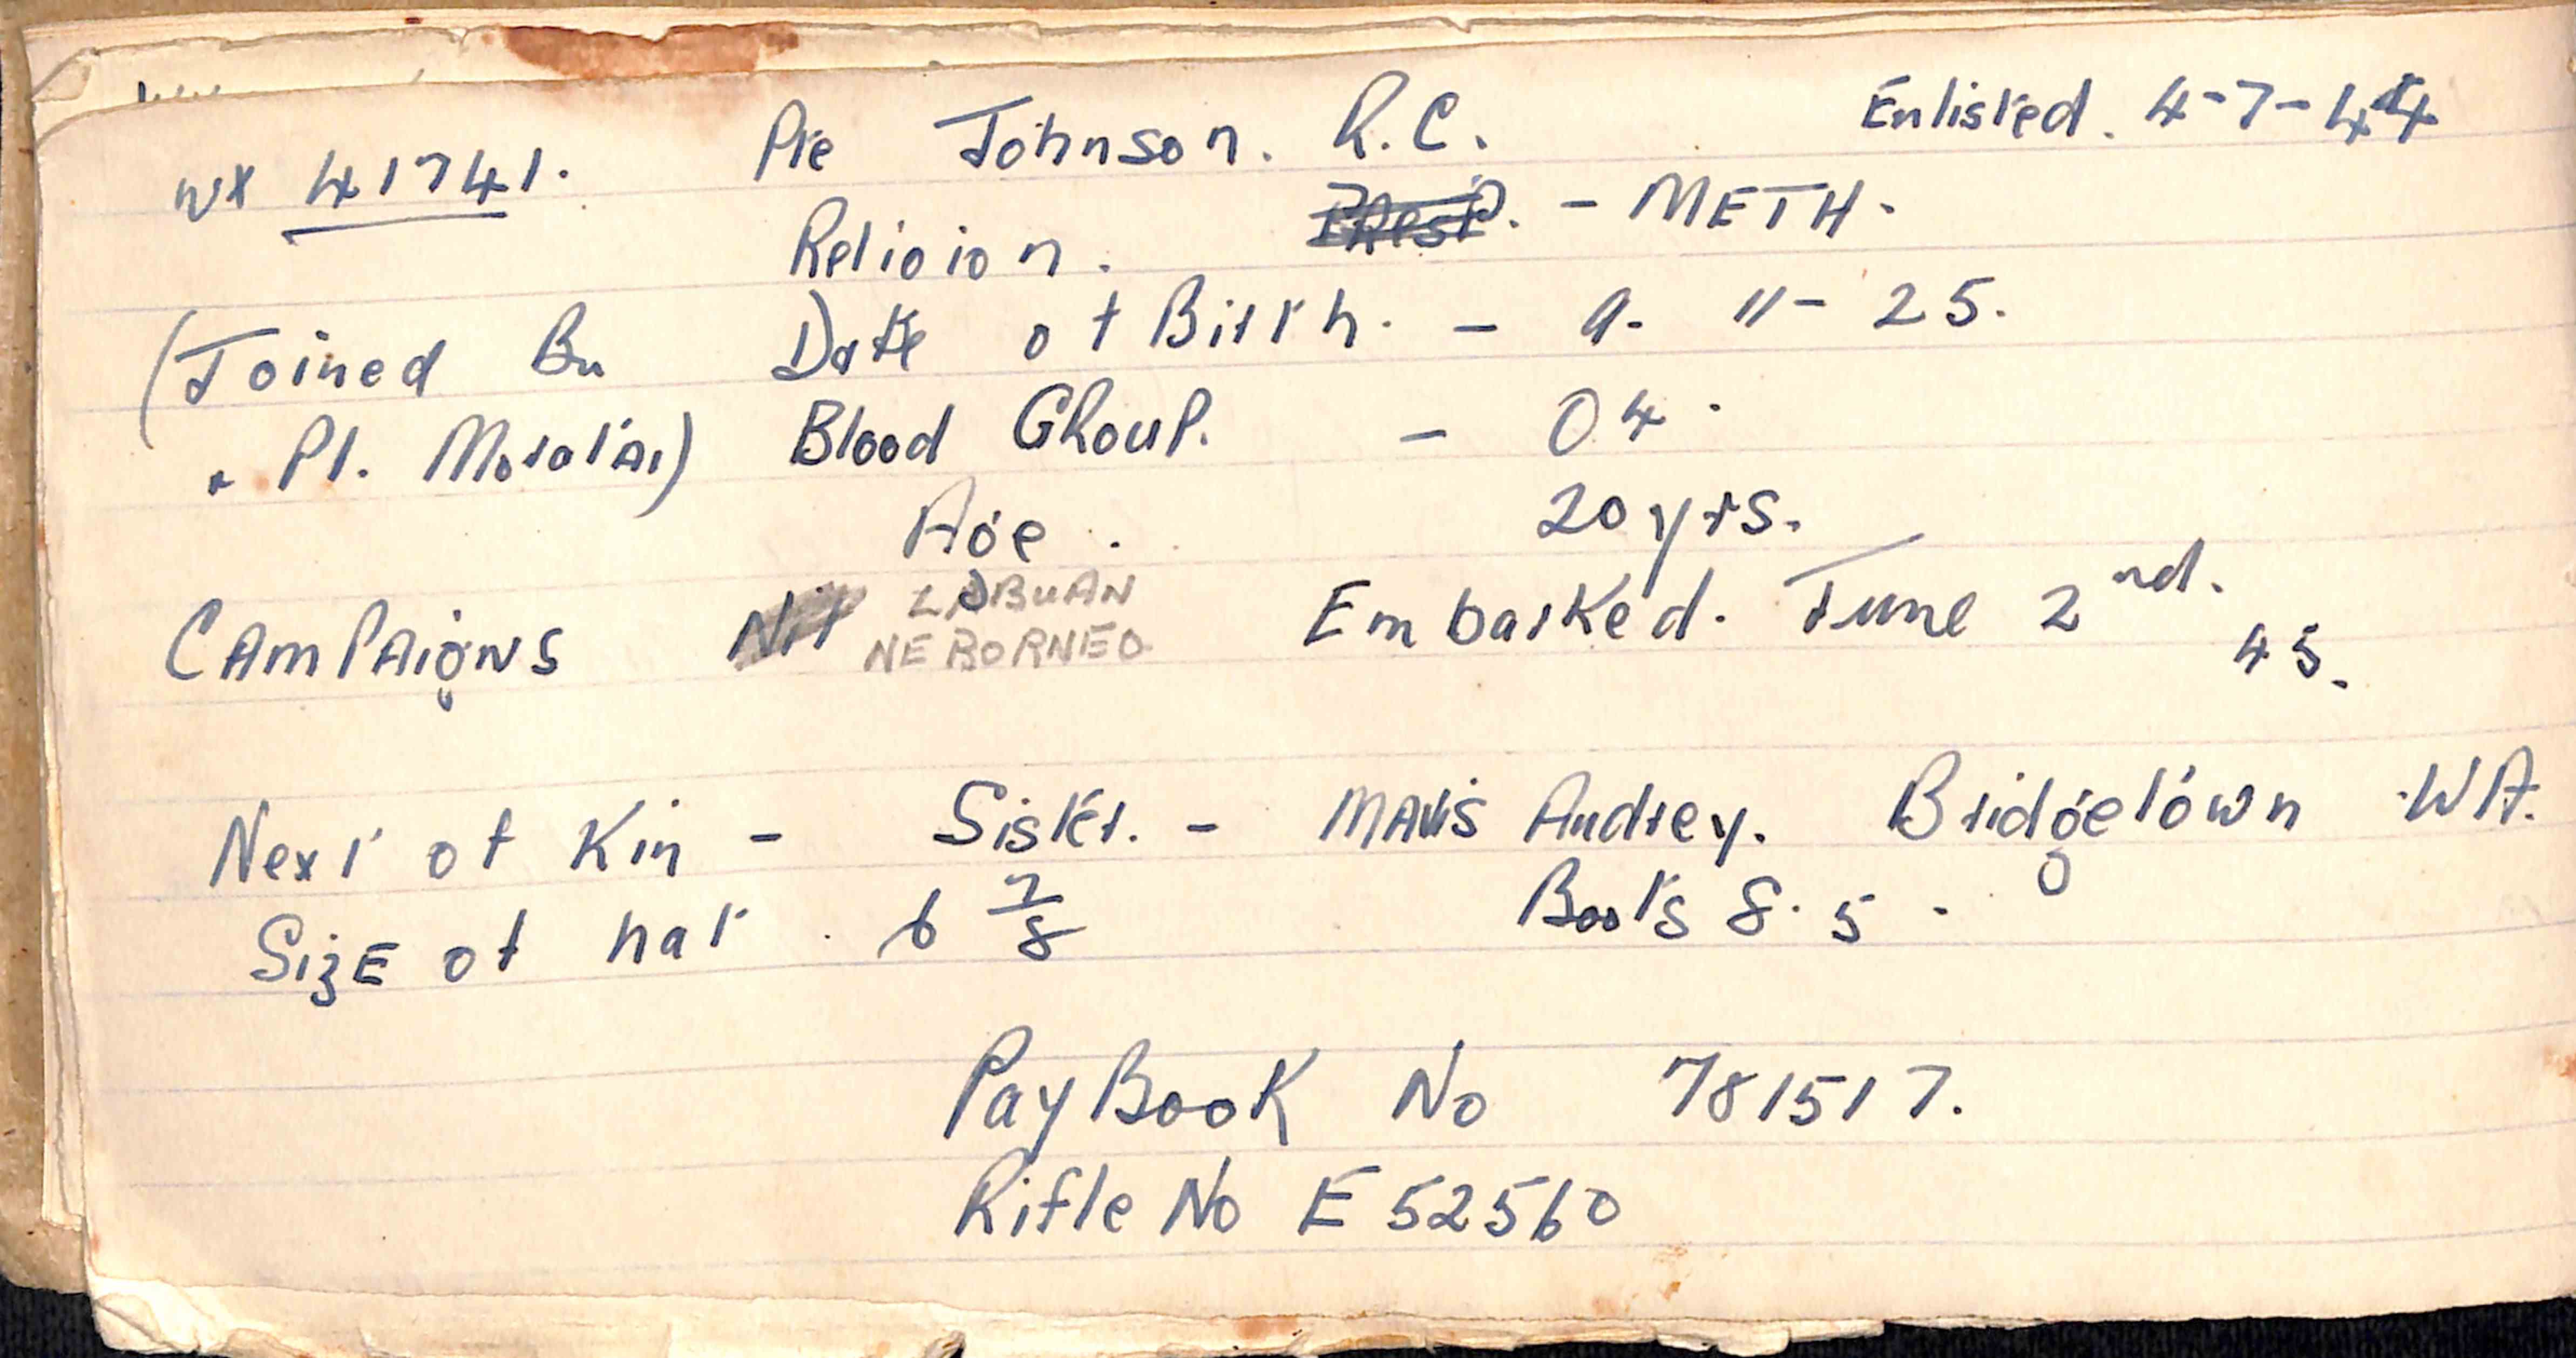 WX 41741. Pte Johnson. R.C. Enlisted. 4-7-44
Religion. Prest. - METH.
(Joined Bn Date of Birth. - 9. 11- 25.
+ Pl. Morotai) Blood GRouP. - O4.
Age. 20 yrs.
CAMPAigNS Nil LABUAN Embarked. June 2nd. 45.
NE BORNEO
Next of Kin - Sister. - MAVIS Audrey. Bridgetown WA.
SizE of hat. 6 7/8 Boots 8. 5.
Pay Book No 781517.
Rifle No E 52560